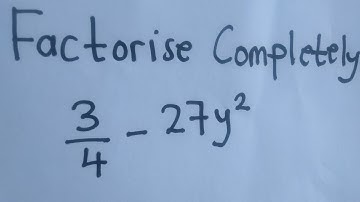 Factorise Completely
3/4 - 27y²